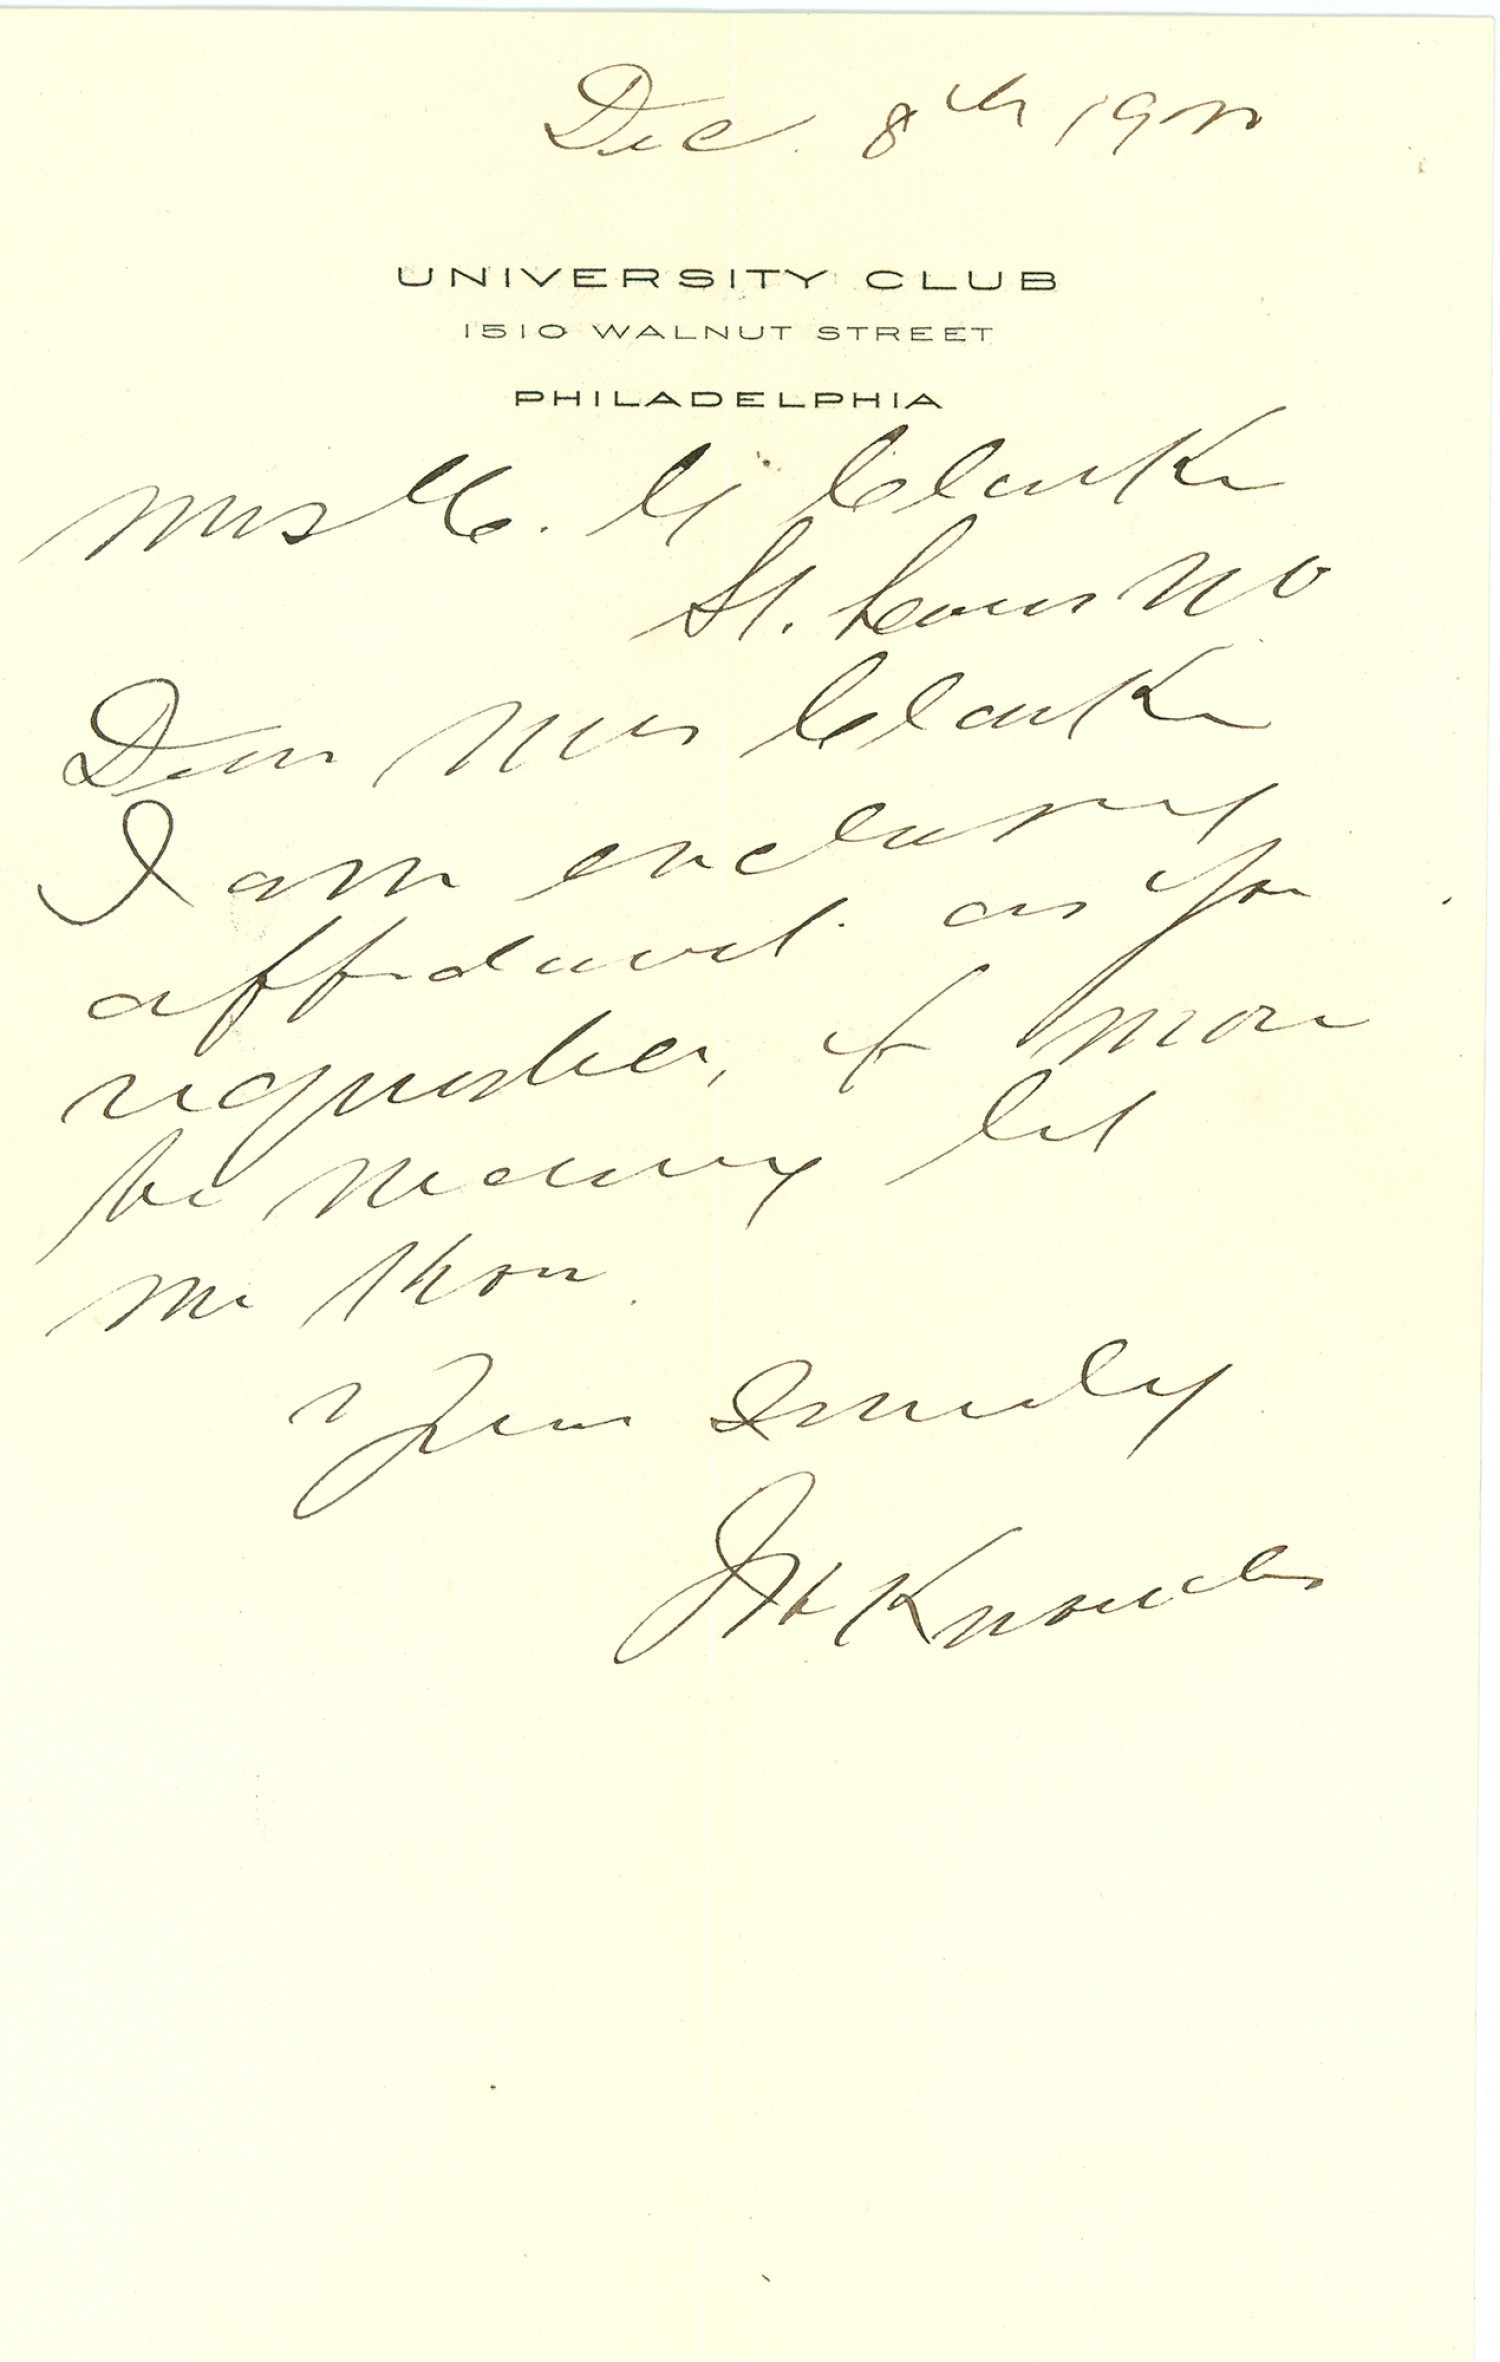 Dec. 8th 1900
UNIVERSITY CLUB
1510 WALNUT STREET
PHILADELPHIA
Mrs Clarke
St. Louis Mo
Dear Mrs Clarke
I am enclosing
affidavit as you
requested, if more
be necessary let
me know.
Yours Sincerely
Knowles